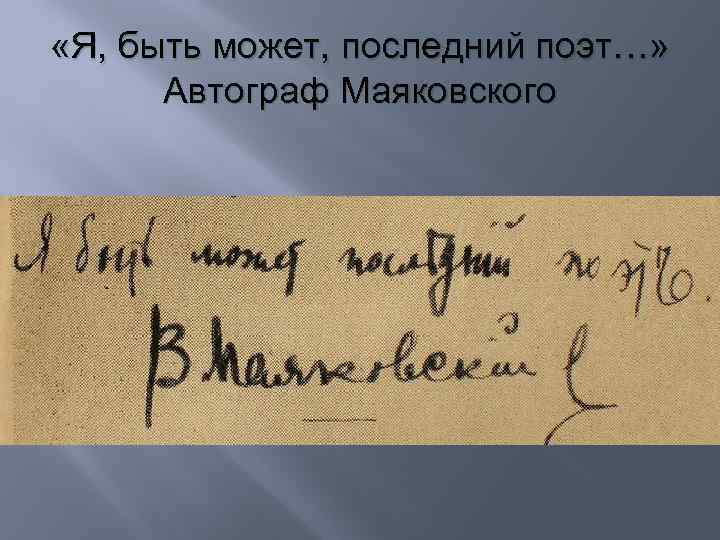 «Я, быть может, последний поэт…»
Автограф Маяковского
Я быть может последний поэтъ.
ВМаяковский